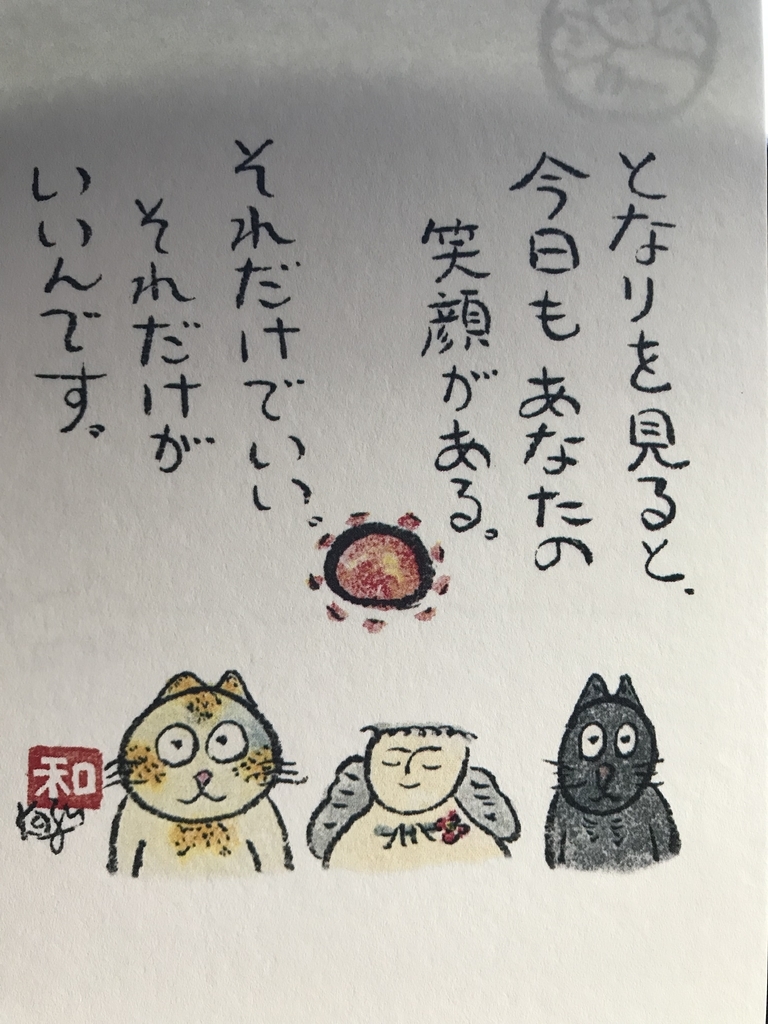 となりを見ると、
今日もあなたの
笑顔がある。
それだけでいい。
それだけが
いいんです。
和